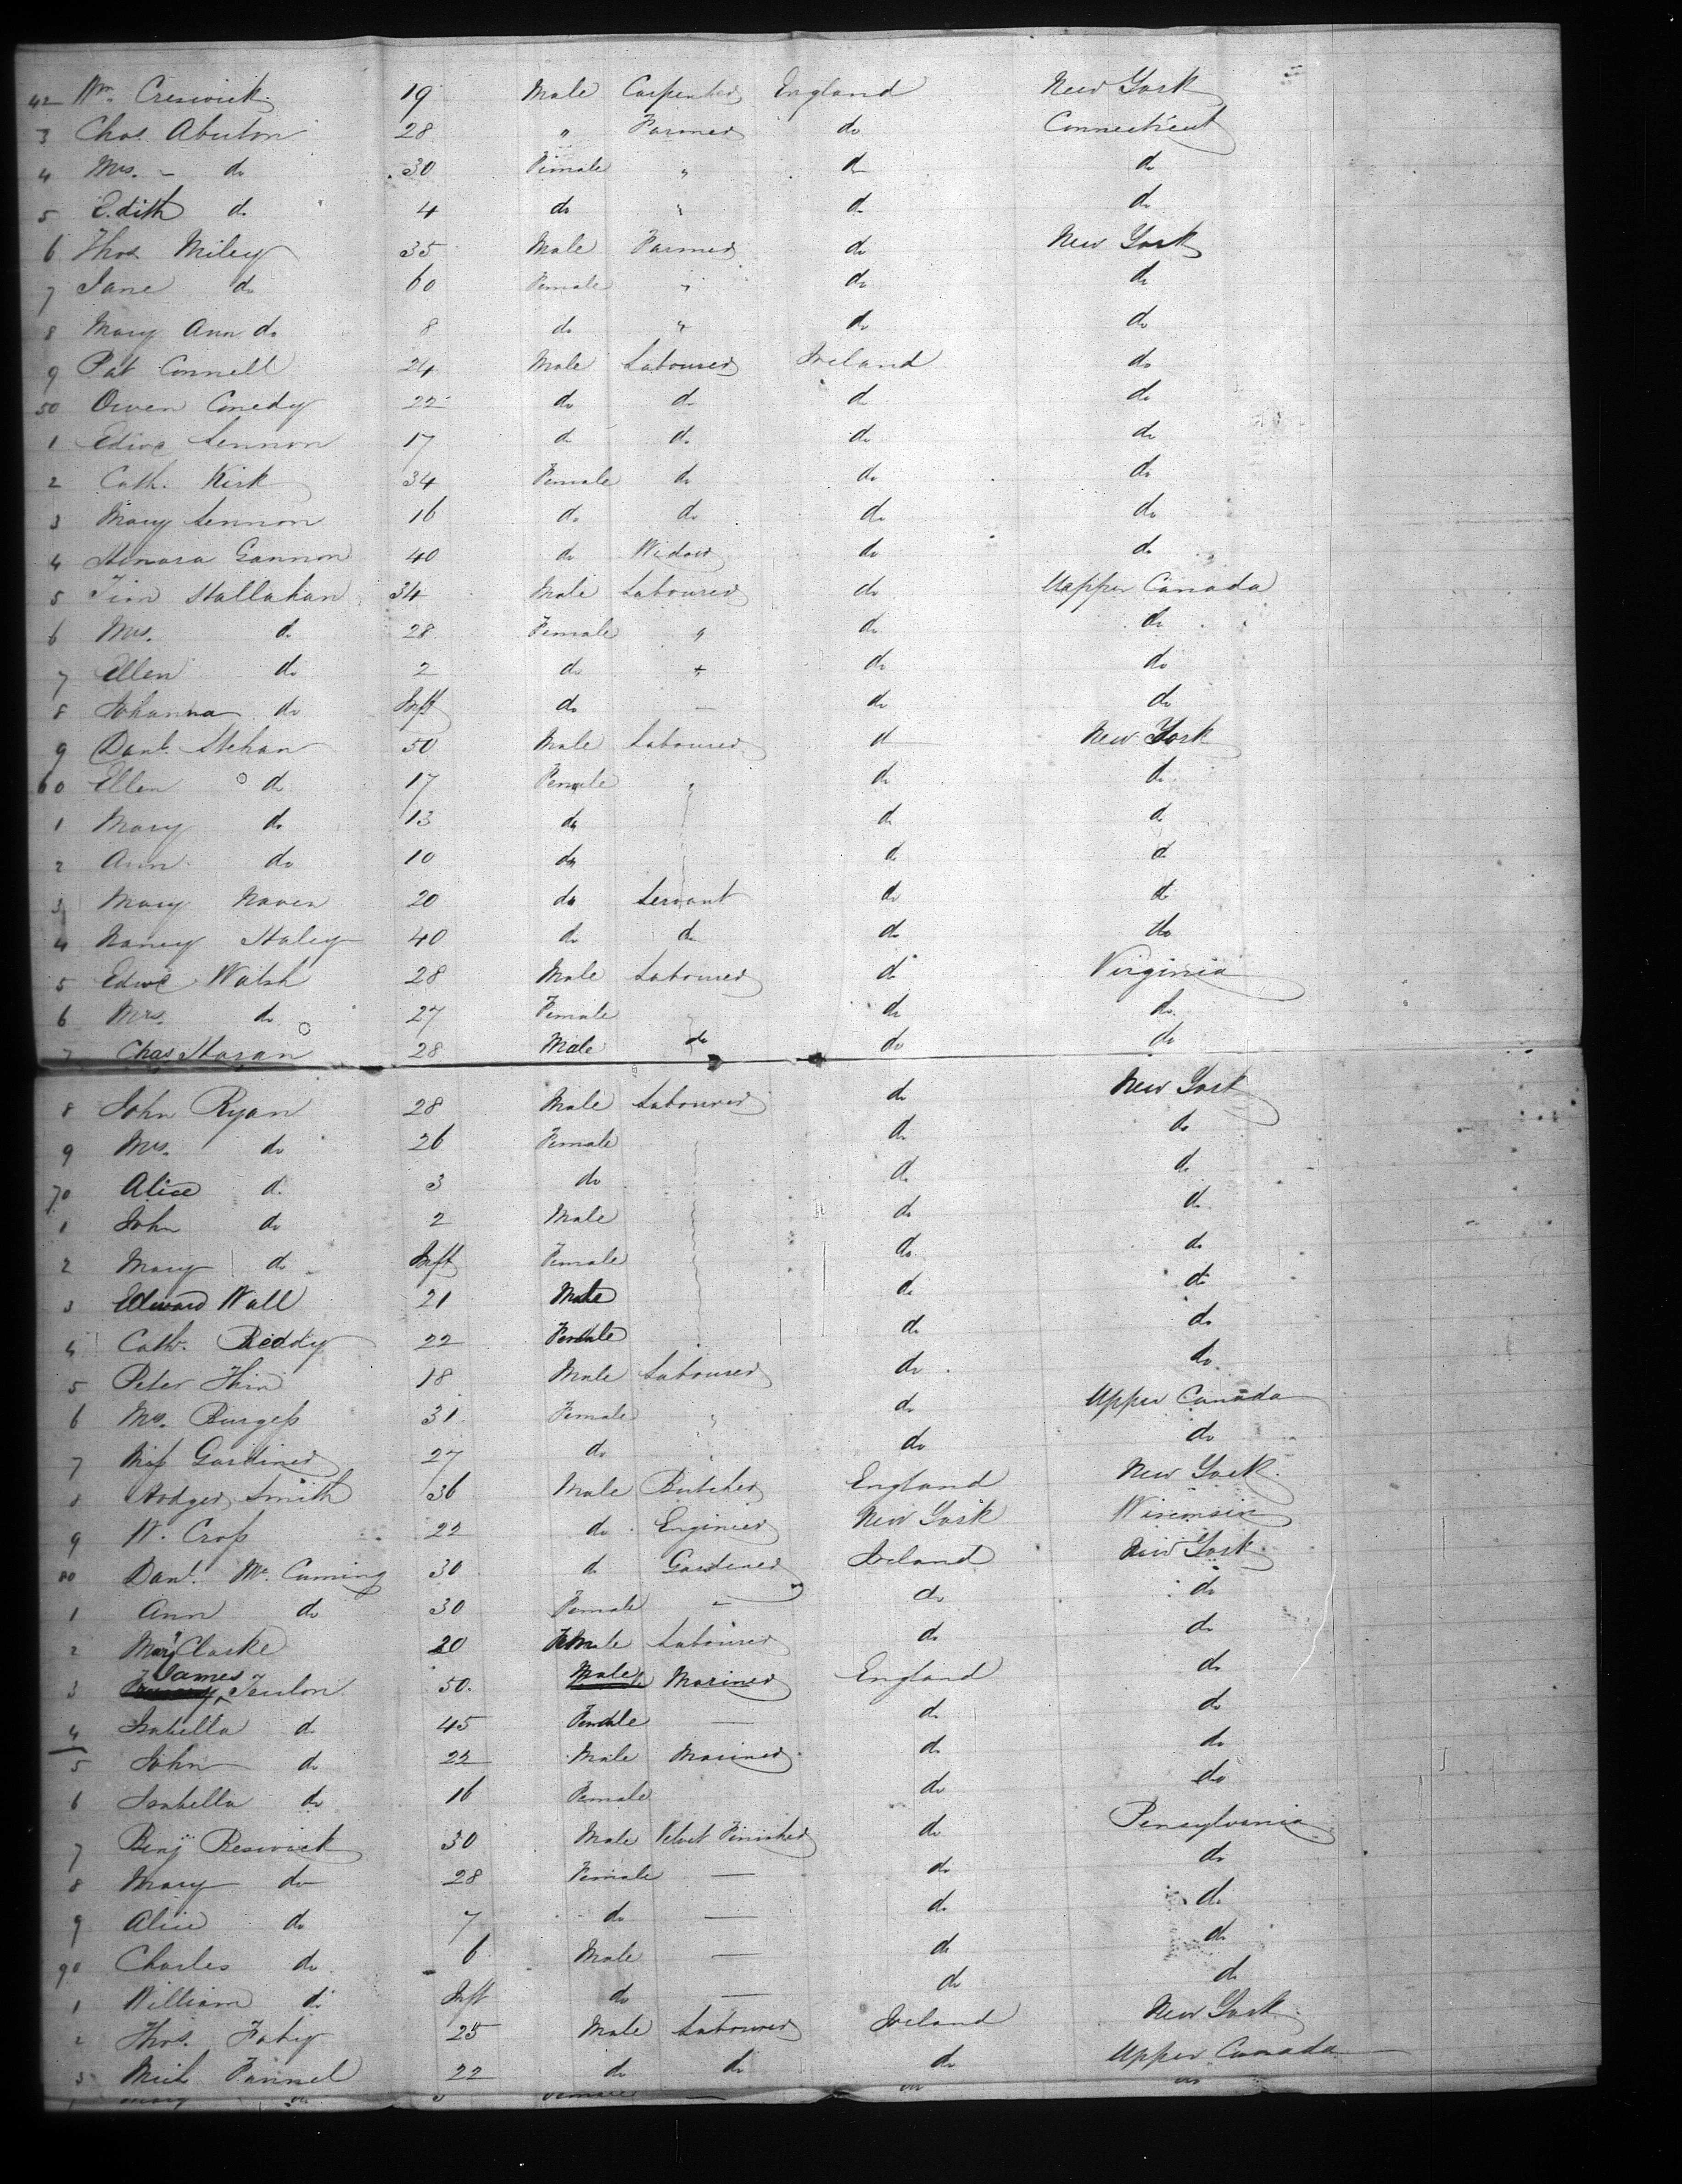 42 Wm. Creswick 19 Male Carpenter England New York
3 Chas. Abuton 28 " Farmer do Connecticut
4 Mrs. - do 30 Female " do do
5 Edith do 4 do " do do
6 Thos. Miley 35 Male Farmer do New York
7 Jane do 60 Female " do do
8 Mary Ann do 8 do " do do
9 Pat Connell 24 Male Labourer Ireland do
50 Owen Conedy 22 do do do do
1 Edwd Lennon 17 do do do do
2 Cath. Kirk 34 Female do do do
3 Mary Lennon 16 do do do do
4 Honora Gannon 40 do Widow do do
5 Tim Hallahan 34 Male Labourer do Uapper Canada
6 Mrs. do 28 Female " do do
7 Ellen do 2 do " do do
8 Johanna do Inft do - do do
9 Danl. Stehan 50 Male Labourer do New York
60 Ellen do 17 Female " do do
1 Mary do 13 do do do
2 Ann do 10 do do do
3 Mary Naven 20 do Servant do do
4 Nancy Haley 40 do do do do
5 Edwd Walsh 28 Male Labourer do Virginia
6 Mrs. do 27 Female do do
7 Chas Horan 28 Male do do do
8 John Ryan 28 Male Labourer do New York
9 Mrs. do 26 Female do do
70 Alice do 3 do do do
1 John do 2 Male do do
2 Mary do Inft Female do do
3 Edward Wall 21 Male do do
4 Cath. Reddy 22 Female do do
5 Peter 18 Male Labourer do do
6 Mrs. Burgess 31 Female " do Upper Canada
7 Miss Gardiner 27 do do do
8 Rodger Smith 36 Male Butcher England New York
9 W. Cross 22 do Engineer New York Wisconsin
80 Danl. Mc. Cuming 30 do Gardener Ireland New York
1 Ann do 30 Female - do do
2 Mary Clarke 20 Female Labourer do do
3 James Teulon 50 Male Mariner England do
4 Isabella do 45 Female - do do
5 John do 22 Male Mariner do do
6 Isabella do 16 Female do do
7 Benj Beswick 30 Male Velvet Finisher do Pensylvania
8 Mary do 28 Female - do do
9 Alice do 7 do - do do
90 Charles do 6 Male - do do
1 William do Inft do - do do
2 Thos. Fahy 25 Male Labourer Ireland New York
3 Mich Fannel 22 do do do Upper Canada